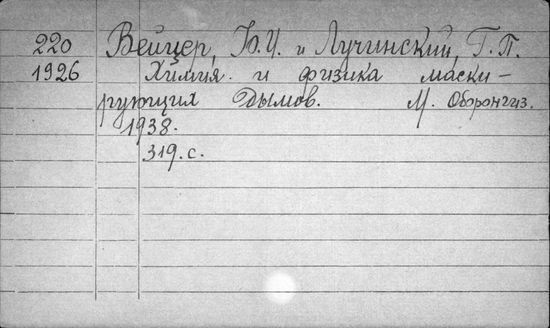 220 Вейцер, Ю.И. и Лучинский, Г.П.
1926 Химия и физика маски-
рующих дымов. М. Оборонгиз.
1938.
319.с.